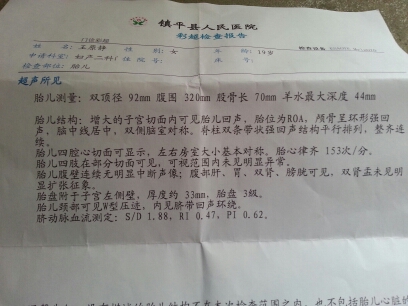 镇平县人民医院
彩超检查报告
门诊彩超
姓 名: 王原静 性 别: 女 年 龄: 19岁
申请科室: 妇产二科 住院号: 床 号:
检查部位: 胎儿
超声所见
胎儿测量: 双顶径 92mm 腹围 320mm 股骨长 70mm 羊水最大深度 44mm
胎儿结构: 增大的子宫切面内可见胎儿回声, 胎位为ROA, 颅骨呈环形强回
声, 脑中线居中, 双侧脑室对称。脊柱双条带状强回声结构平行排列, 整齐连
续。
胎儿四腔心切面可显示, 左右房室大小基本对称, 胎心律齐 153次/分。
胎儿四肢在部分切面可见, 可视范围内未见明显异常。
胎儿腹壁连续无明显中断声像; 腹部肝、胃、双肾、膀胱可见, 双肾盂未见明
显扩张征象。
胎盘附于子宫左侧壁, 厚度约 33mm, 胎盘 3级。
胎儿颈部可见W型压迹, 内见脐带回声环绕。
脐动脉血流测定: S/D 1.88, RI 0.47, PI 0.62。
胎儿结构不在本次检查范围之内, 也不包括胎儿心脏的